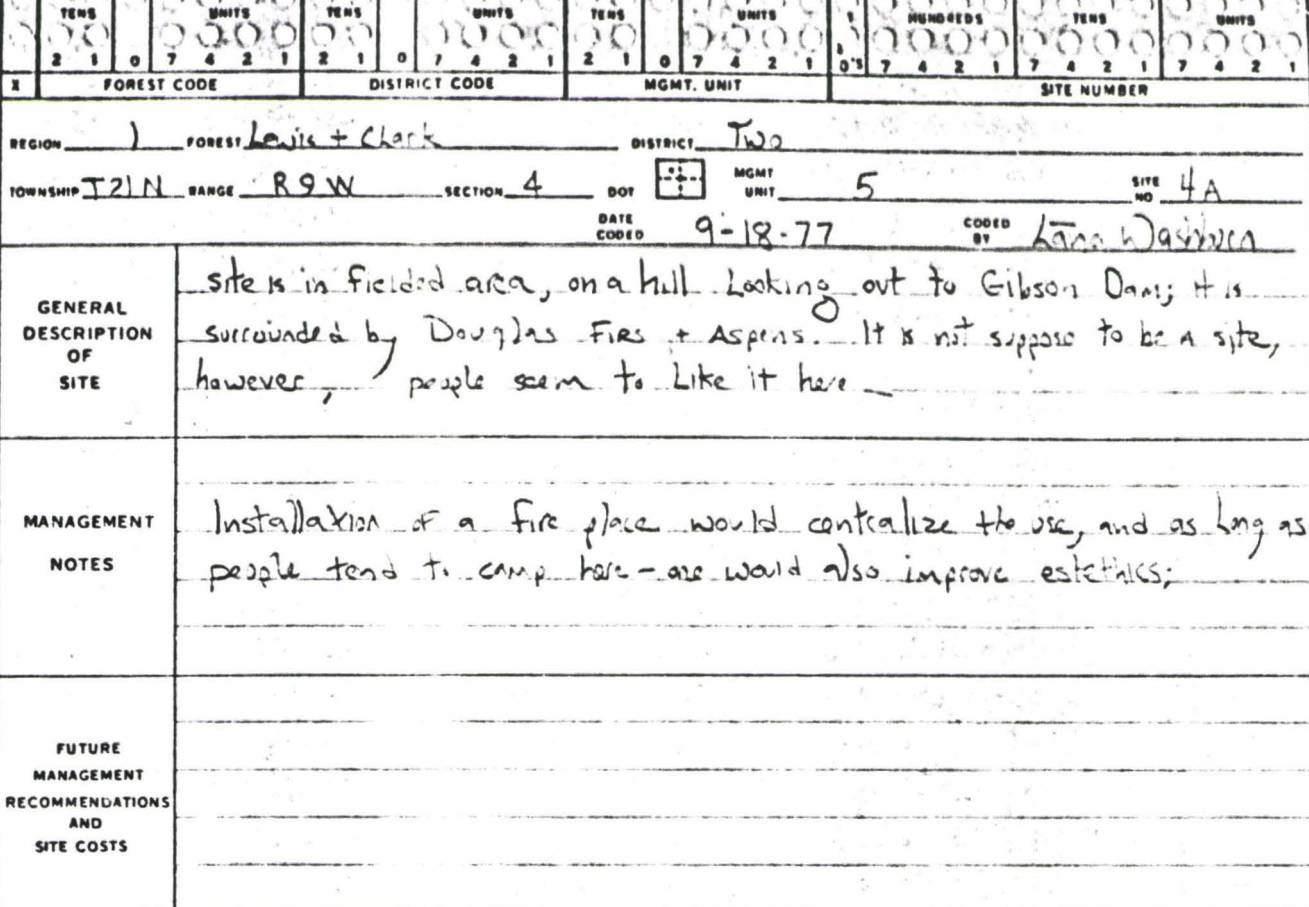 TENS UNITS TENS UNITS TENS UNITS HUNDREDS TENS UNITS
2 1 0 7 4 2 1 2 1 0 7 4 2 1 2 1 0 7 4 2 1 0'S 7 4 2 1 7 4 2 1 7 4 2 1
X FOREST CODE DISTRICT CODE MGMT. UNIT SITE NUMBER
REGION 1 FOREST Lewis + Clark DISTRICT Two
TOWNSHIP T21N RANGE R9W SECTION 4 DOT MGMT UNIT 5 SITE NO 4A
DATE CODED 9-18-77 CODED BY Washburn
GENERAL DESCRIPTION OF SITE
site is in fielded area, on a hill Looking out to Gibson Dam; it is
surrounded by Douglas Firs + Aspens. It is not suppose to be a site,
however, people seem to Like it here
MANAGEMENT NOTES
Installation of a fire place would centralize the use, and as long as
people tend to camp here - would also improve estethics;
FUTURE
MANAGEMENT
RECOMMENDATIONS
AND
SITE COSTS